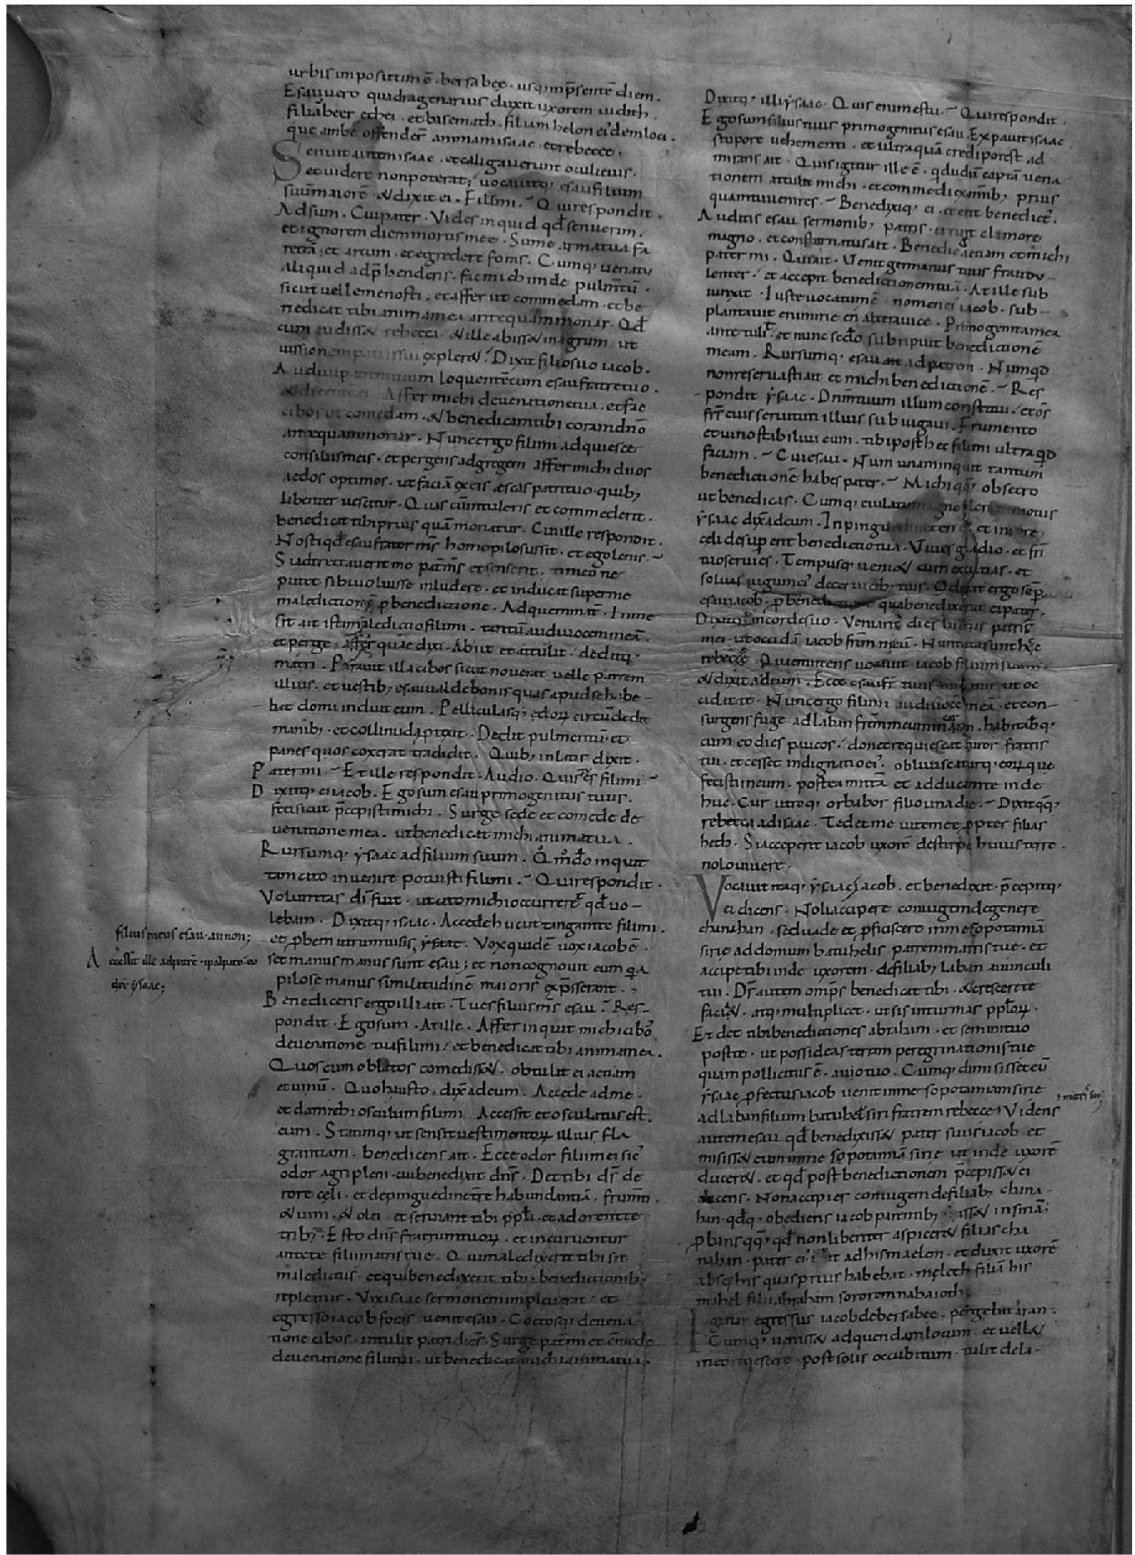 urbis impositum ē · bersabęę · usq; in p̄sentē diem .
Esau uero quadragenarius duxit uxorem iudith
filiā beer ethei . et basemath . filiam helon ei'dem loci .
que ambę offender̄ animam isaac . et rebecce .
Senuit autem isaac . et caligauerunt oculi eius .
et uidere non poterat ; uocauitq; esau filium
suum maiorē . & dixit ei . Fili mi . Qui respondit .
Adsum . Cui pater . Vides inquid qđ senuerim /
et ignorem diem mortis meę . Sume arma tua fa
retrā . et arcum . et egredere foras . Cumq; uenatu
aliquid adp̄hendens . fac mihi inde pulmtū
sicut uelle me nosti . et affer ut commedam . et be
nedicat tibi anima mea antequam moriar . Qđ
cum audiss& rebecca . & ille abiss& in agrum ut
iussionem patris sui expler& . Dixit filio suo iacob .
Audiui patrem tuum loquentē cum esau fratre tuo .
& dicente ei . Affer michi de uenatione tua . et fac
cibos ut comedam . & benedicam tibi coram dn̄o
antequam moriar . Nunc ergo fili mi adquiesce
consiliis meis . et pergens ad gregem affer michi duos
aedos optimos . ut faciā ex eis escas patri tuo . quib;
libenter uescitur . Quas cū intuleris et commederit .
benedicat tibi prius quā moriatur . Cui ille respondit .
Nosti qđ esau frater ms̄ homo pilosus sit . et ego lenis .
Si adtrectauerit me pater ms̄ et senserit . timeo ne
putet sibi uoluisse inludere . et inducat super me
malediction̄ę p̄ benedictione . Ad quem mat̄ . In me
sit ait ista maledictio fili mi . tantū audi uocem meā .
et perge . affer quae dixi . Abiit et attulit . deditq;
matri . Parauit illa cibos sicut nouerat uelle patrem
illius . et uestib; esau ualde bonis quas apud se habe
bat domi induit eum . Pelliculasq; edorum circūdedit
manib; . et colli nuda p̄texit . Dedit pulmentū . et
panes quos coxerat tradidit . Quib; inlatis dixit .
Pater mi . Et ille respondit . Audio . Quis es fili mi
Dixitq; ei iacob . Ego sum esau primogenitus tuus .
feci sicut p̄cepisti michi . Surge sede et comede de
uenatione mea . ut benedicat michi anima tua .
Rursumq; ysaac ad filium suum . Qm̊do inquit
tam cito inuenire potuisti fili mi . Qui respondit .
Voluntas di' fuit . ut cito michi occurreret qđ uo
lebam . Dixitq; isaac . Accede huc ut tangam te fili mi .
et p̄bem utrum tu sis
filius meus esau . an non ;
Accessit ille ad patrē . & palpato eo
dix̄ ysaac ;
Vox quidē uox iacob ē .
set manus manus sunt esau ; et non cognouit eum q̄a
pilose manus similitudinē maioris exp̄sserant .
Benedicens ergo illi ait . Tu es filius ms̄ esau . Res
pondit . Ego sum . At ille . Affer inquit michi cibō
de uenatione tua fili mi / et benedicat tibi anima mea .
Quos cum oblatos comediss& . obtulit ei aetiam
et uinū . Quo hausto . dix̄ ad eum . Accede ad me .
et da michi osculum fili mi . Accessit et osculatus est
eum . Statimq; ut sensit uestimentorum illius fla
grantiam . benedicens ait . Ecce odor filii mei sic'
odor agri pleni . cui benedixit dn̄s . Det tibi ds̄ de
rore cęli . et de pinguedine terrę habundantiā . frum̄
& uini . & olei . et seruiant tibi pp̄li . et adorent te
trib; . Esto dn̄s fratrum tuorum . et incuruentur
ante te filii matris tue . Qui maledixerit tibi sit
maledictus . et qui benedixerit tibi benedictionib;
repletur . Vix isaac sermonem impleuerat . et
egresso iacob foras uenit esau . Coctosq; de uena
tione cibos . intulit patri dicēs . Surge pater mi et cōmede
de uenatione filii tui . ut benedicat michi anima tua .
Dixitq; illi ysaac . Quis enim es tu . Qui respondit .
Ego sum filius tuus primogenitus esau . Expauit isaac
stupore uehementi . et ultra quā credi potest ad
mirans ait . Quis igitur ille ē . q dudū captā uena
tionem attulit michi . et commedi ex omīb; prius
quam tu uenires . Benedixiq; ei . et erit benedict' .
Auditis esau sermonib; patris . irrugit clamore
magno . et consternatus ait . Benedic aetiam et michi
pater mi . Qui ait . Venit germanus tuus fraudu
lenter / et accepit benedictionem tuā . At ille sub
iunxit . Iuste uocatum ē . nomen ei' iacob . Sub
plantauit enim me en altera uice . Primogenita mea
ante tulit . et nunc secđo subripuit benedictionē
meam . Rursumq; esau ait ad patrem . Numqd
non reseruasti ait et michi benedictionē . Res
pondit ysaac . Dnm̄ tuum illum constitui / et om̄s
frs̄ eius seruituti illius subiugaui . Frumento
et uino stabiliui eum . tibi post hęc fili mi ultra qd
faciam . Cui esau . Num unam inquit tantum
benedictionē habes pater . Michi qq; obsecro
ut benedicas . Cumq; eiulatu magno fleret . motus
ysaac dix̄ ad eum . In pinguedine terrę et in rore
cęli desup̄ erit benedictio tua . Viues gladio . et frī
tuo seruies . Tempusq; ueni& cum excutias . et
soluas iugum ei' de ceruicib; tuis . Oderat ergo sep̄
esau iacob . p̄ benedictione qua benedixerat ei pater .
Dixitq; in corde suo . Venient dies luctus patris
mei . ut occidā iacob frm̄ meū . Nuntiata sunt hęc
rebecce . Quę mittens uocauit iacob filium suum
& dixit ad eum . Ecce esau frater tuus minatur ut oc
cidat te . Nunc ergo fili mi audi uocē mea . et con
surgens fuge ad laban frm̄ meum in aran . habitabq;
cum eo dies paucos / donec requiescat furor fratris
tui . et cesset indignatio ei' . obliuiscaturq; eorum que
fecisti in eum . postea mittā et adducam te inde
huc . Cur utroq; orbabor filio una die . Dixitq;
rebecca ad isaac . Tedet me uite mee p̄pter filias
heth . Si acceperit iacob uxorē de stirpe huius terre .
nolo uiuere .
Vocauit itaq; ysaac iacob . et benedixit . p̄cepitq;
ei dicens . Noli accipere coniugem de genere
chanahan . sed uade et p̄ficiscere in mesopotamiā
sirie ad domum bathuelis patrem matris tue . et
accipe tibi inde uxorem . de filiab; laban auunculi
tui . Ds̄ autem omp̄s benedicat tibi . & crescere te
faci& . atq; multiplicet . ut sis in turmas pp̄lorum .
Et det tibi benedictiones abraham . et semini tuo
post te . ut possideas terram peregrinationis tue
quam pollicitus ē . auo tuo . Cumq; dimisisset eū
ysaac p̄fectus iacob uenit in mesopotamiam sirie
ad laban filium batuhel siri fratrem rebecce matris sue ; Videns
autem esau qđ benedixiss& pater suus iacob et
misiss& eum in mesopotamiā sirie ut inde uxorē
ducer& . et qđ post benedictionem p̄cepiss& ei
dicens . Non accipies coniugem de filiab; chana
han . qdq; obediens iacob parentib; iss& in siriā ;
p̄bans qq; qđ non libenter aspicer& filias cha
nahan . pater ei' iuit ad hismaelem . et duxit uxorē
absq; his quas prius habebat . meleth filiā his
mahel filii abraham sororem nabaioth .
Igitur egressus iacob de bersabee . pergebat aran .
Cumq; ueniss& ad quendam locum . et uell&
in eo reqescere . post solis occubitum . tulit de la